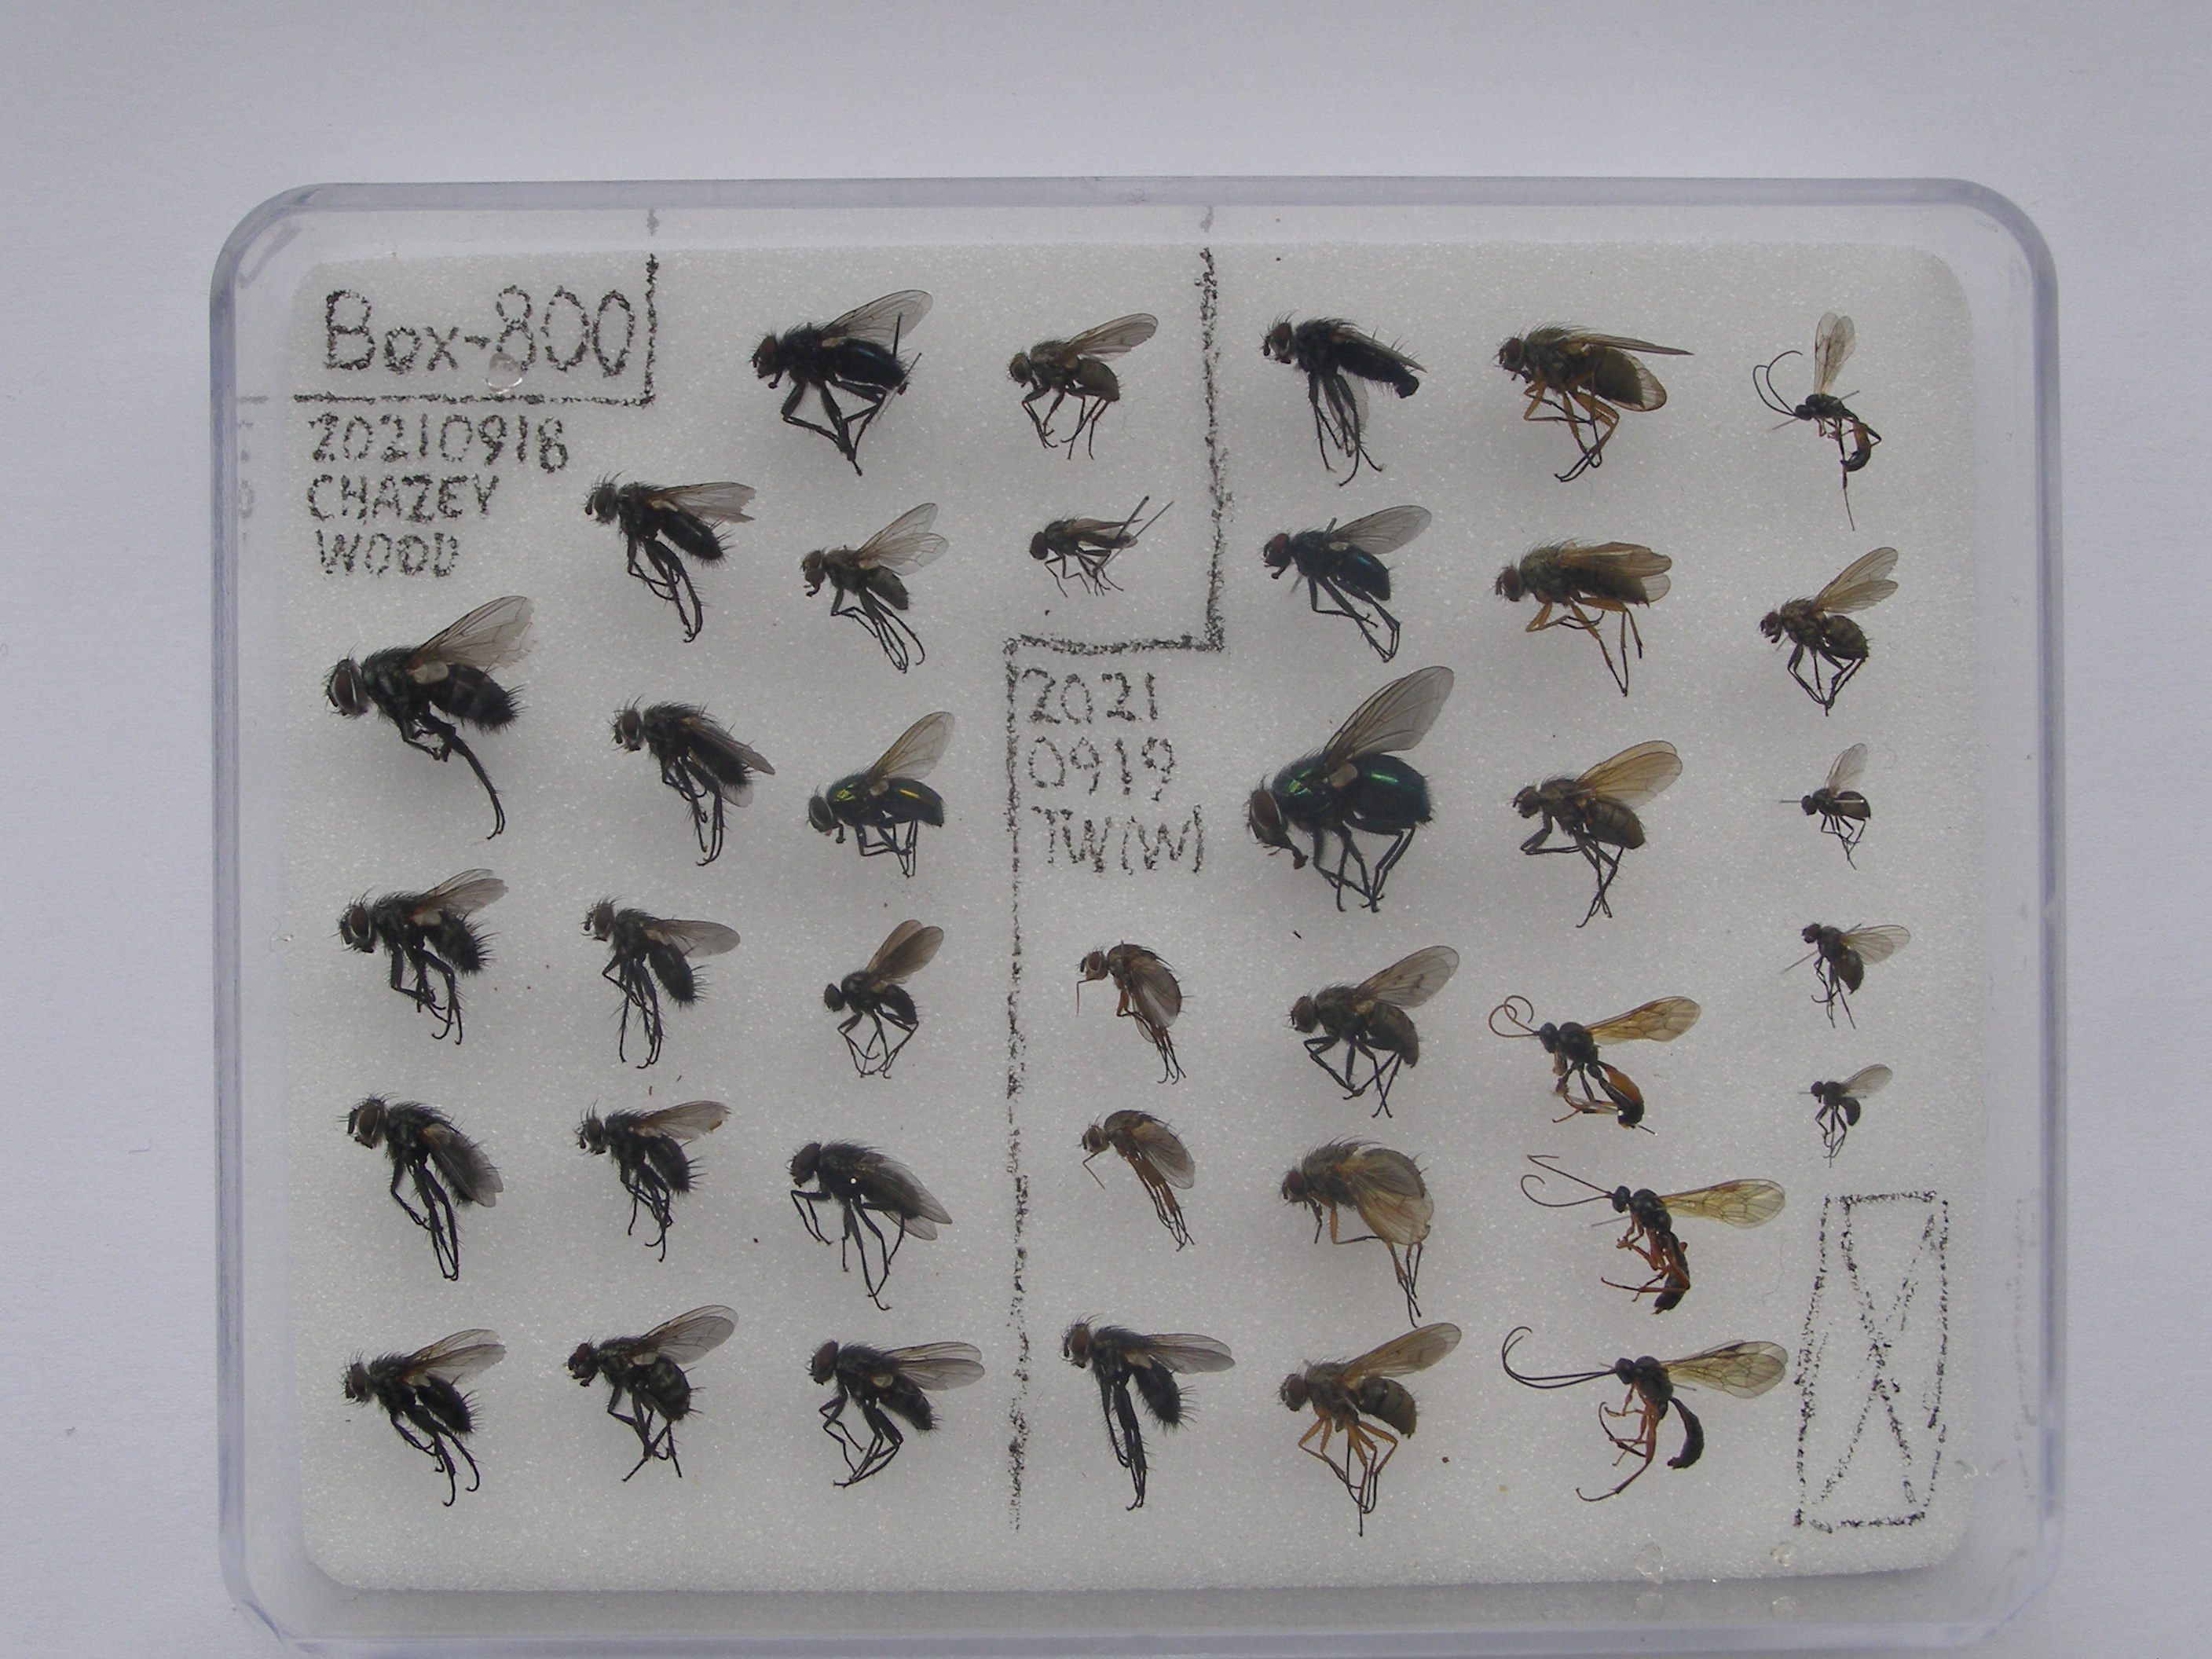 Box-800
20210918
CHAZEY
WOOD
2021
0919
TW(W)